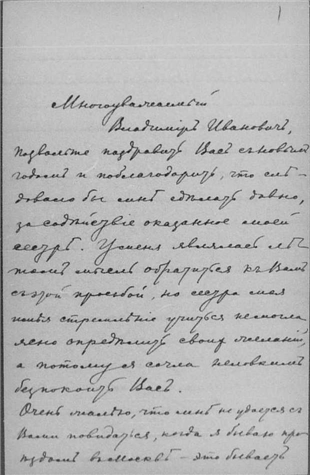 1
Многоуважаемый
Владимiръ Ивановичъ,
позвольте поздравить Васъ съ новымъ
годомъ и поблагодарить, что слѣ-
довало бы мнѣ сдѣлать давно,
за содѣйствiе оказанное моей
сестрѣ. У меня являлась лѣ-
томъ мысль обратиться къ Вамъ
съ этой просьбой, но сестра моя
стремленiю учиться не могла
ясно опредѣлить своихъ желанiй,
а потому я сочла неловкимъ
безпокоить Васъ.
Очень жалѣю, что мнѣ не удается съ
Вами повидаться, когда я бываю про-
ѣздомъ въ Москвѣ – это бываетъ